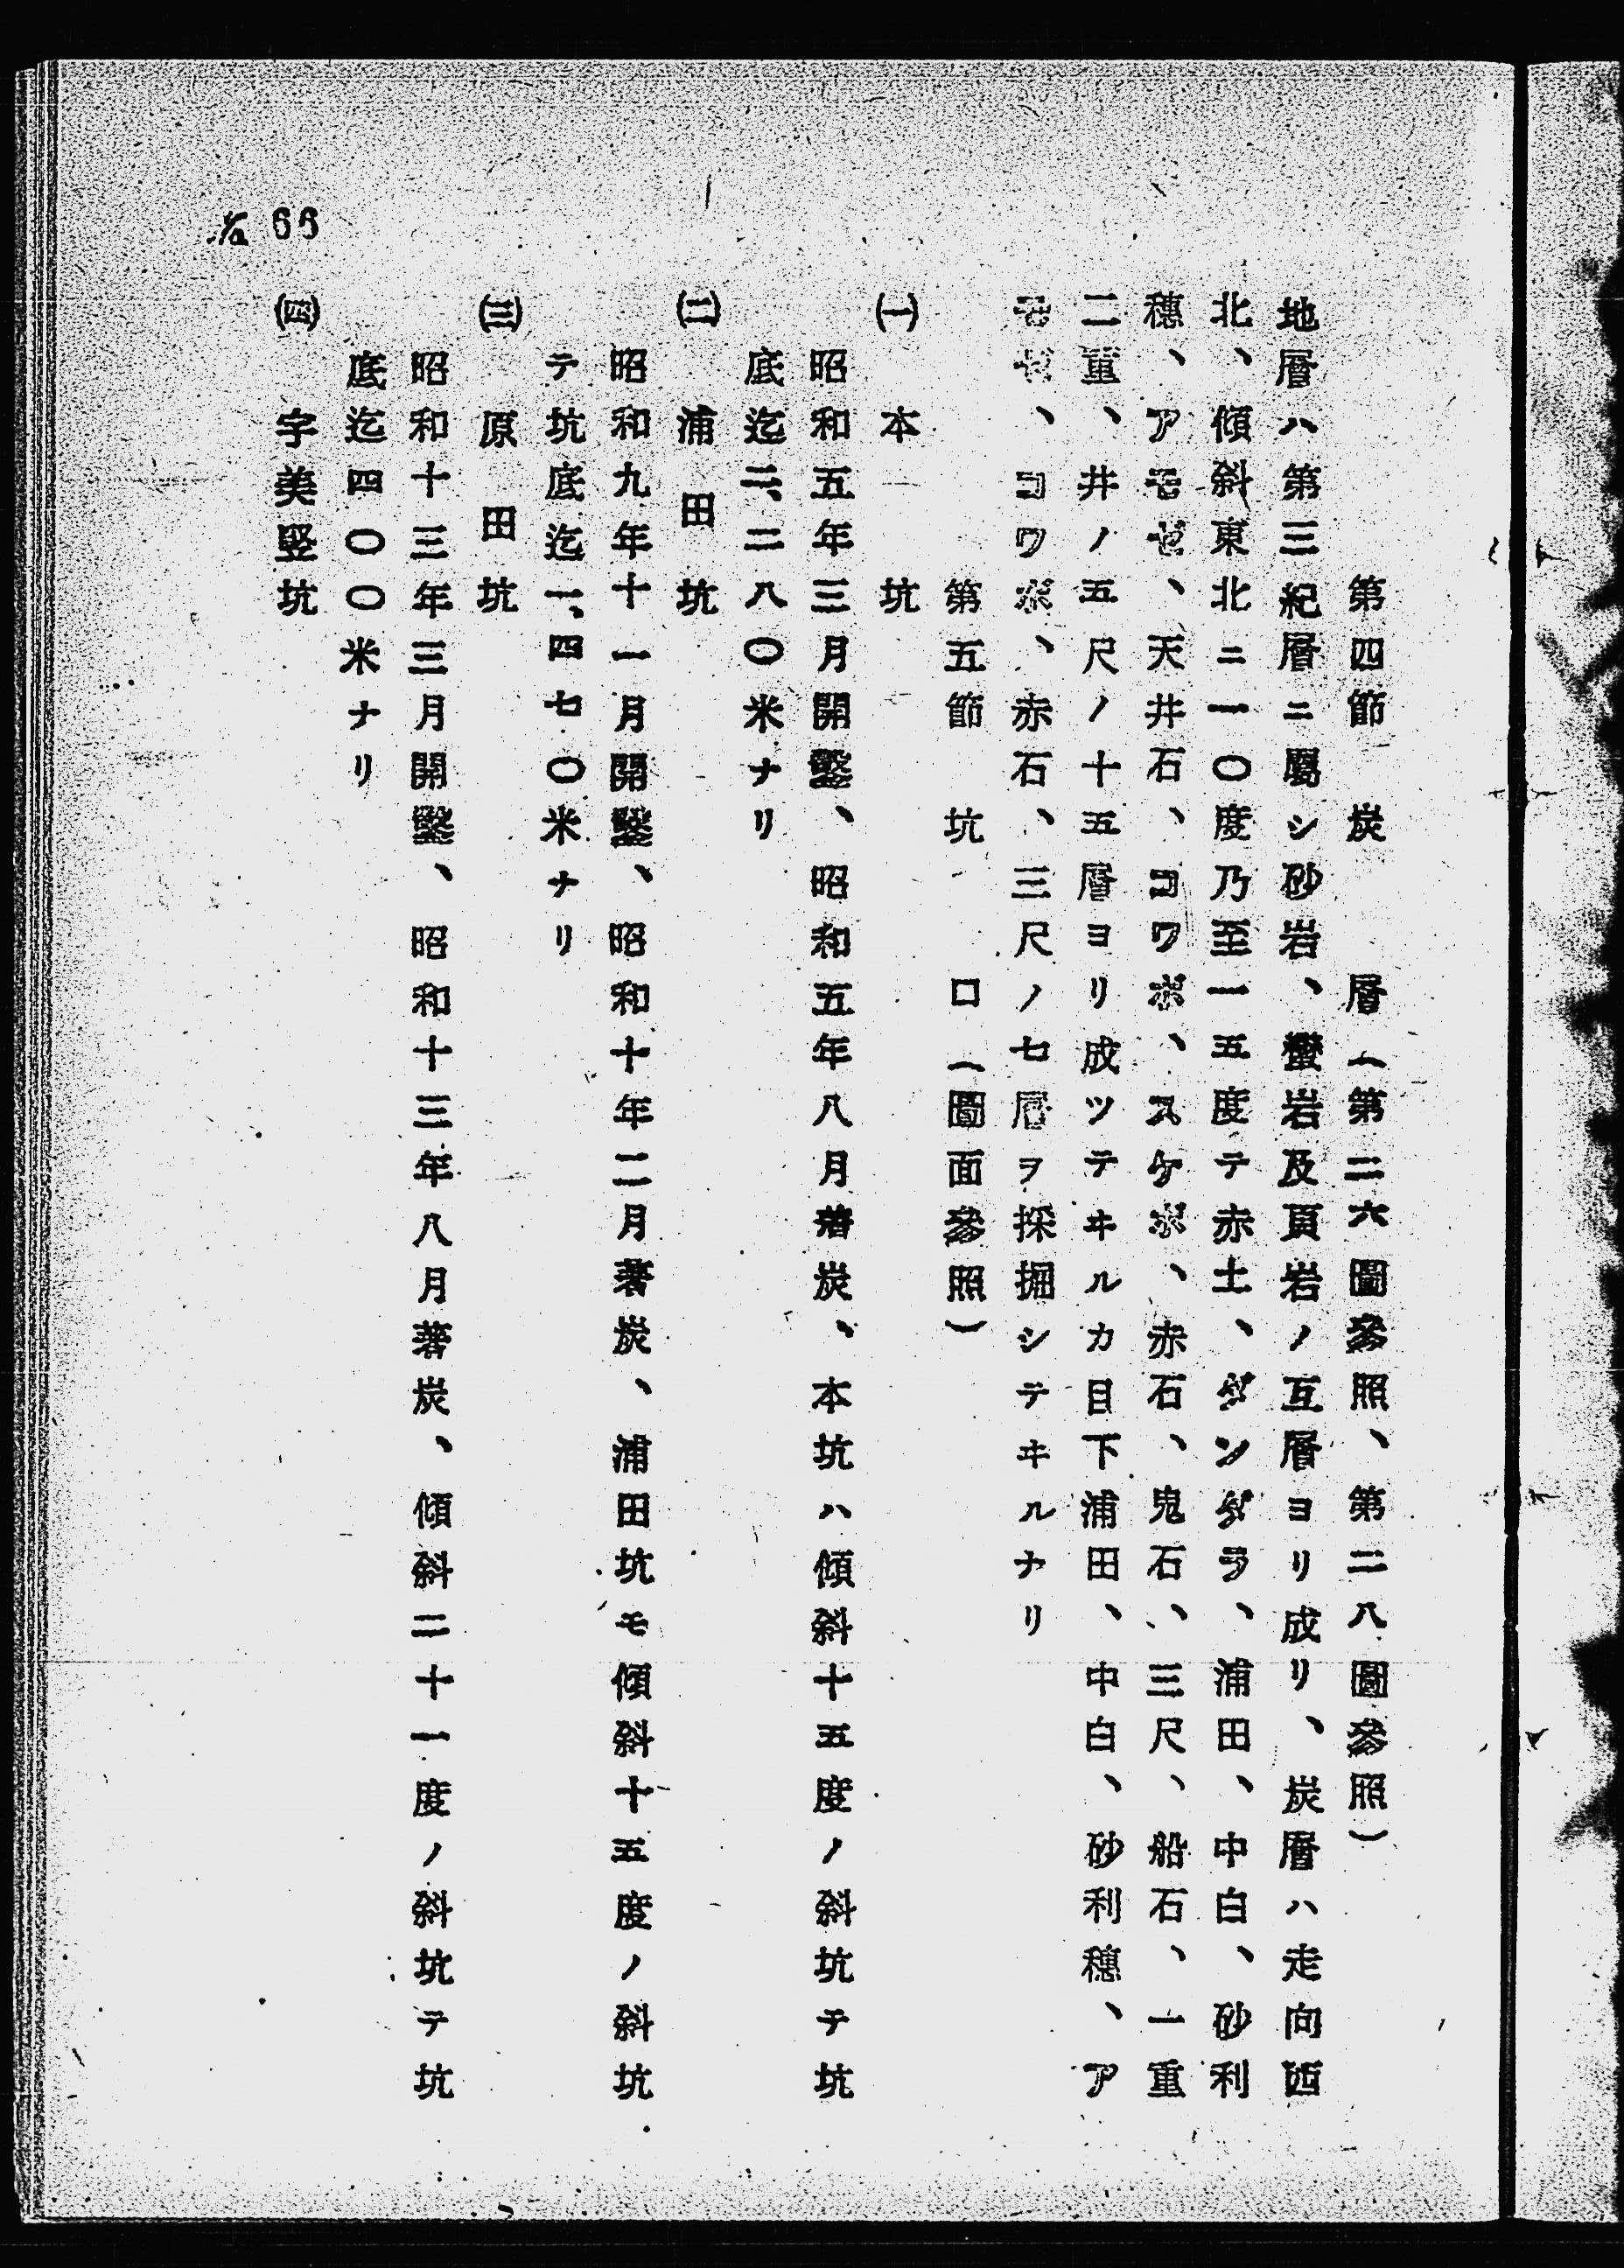 第四節　炭　層（第二六圖參照、第二八圖參照）
地層ハ第三紀層ニ屬シ砂岩、蠻岩及頁岩ノ互層ヨリ成リ、炭層ハ走向西
北、傾斜東北ニ一〇度乃至一五度テ赤土、ダンダラ、浦田、中白、砂利
穗、アモゼ、天井石、コワボ、スケボ、赤石、鬼石、三尺、船石、一重
二重、井ノ五尺ノ十五層ヨリ成ツテヰルカ目下浦田、中白、砂利穗、ア
モゼ、コワボ、赤石、三尺ノ七層ヲ採掘シテヰルナリ
第五節　坑　口（圖面參照）
㈠　本　坑
昭和五年三月開鑿、昭和五年八月著炭、本坑ハ傾斜十五度ノ斜坑テ坑
底迄二、二八〇米ナリ
㈡　浦田坑
昭和九年十一月開鑿、昭和十年二月著炭、浦田坑モ傾斜十五度ノ斜坑
テ坑底迄一、四七〇米ナリ
㈢　原田坑
昭和十三年三月開鑿、昭和十三年八月著炭、傾斜二十一度ノ斜坑テ坑
底迄四〇〇米ナリ
㈣　宇美竪坑
66